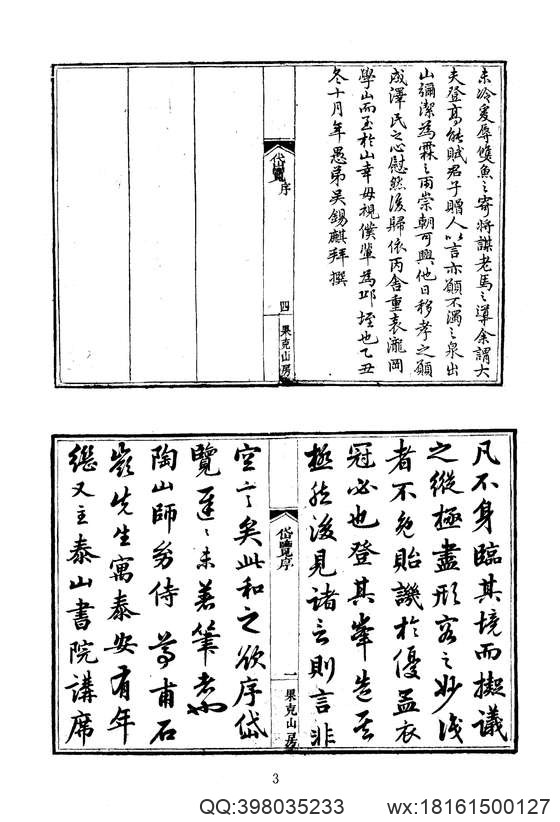 未冷爰辱雙魚之寄將謀老馬之導余謂大
夫登高能賦君子贈人以言亦願不濁之泉出
山彌潔為霖之雨崇朝可興他日移孝之願
成澤民之心慰然後歸依丙舍重表瀧岡
學山而至於山幸毋視僕輩為邱垤也乙丑
冬十月年愚弟吳錫麒拜撰
岱覽序
四
果克山房
凡不身臨其境而擬議
之縱極盡形容之妙淺
者不免貽譏於優孟衣
冠必也登其峯造其
極然後見諸言則言非
岱覽序
一
果克山房
空言矣此和之欲序岱
覽遲遲未著筆者
陶山師昔侍尊甫石
嶺先生寓泰安有年
繼又主泰山書院講席
3
QQ:398035233
wx:18161500127